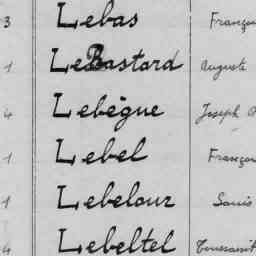 3 Lebas Françoi
1 LeBastard Auguste
4 Lebègue Joseph
1 Lebel Françoi
1 Lebelour Louis
4 Lebeltel Toussaint